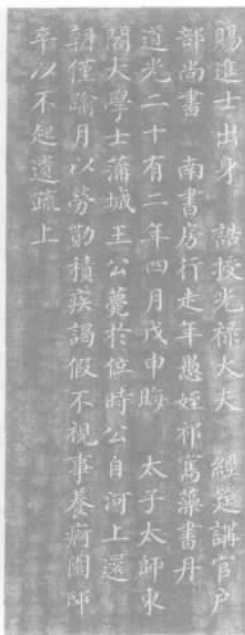 賜進士出身　誥授光祿大夫　經筵講官戶
部尚書　南書房行走年愚姪祁寯藻書丹
道光二十有二年四月戊申晦　太子太師東
閣大學士蒲城王公薨於位時公自河上還
朝僅踰月以勞勩積疾謁假不視事養疴園邸
卒以不起遺疏上